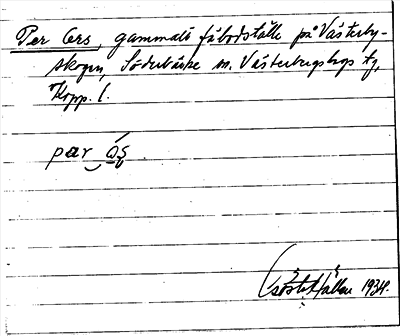 Per Ers, gammalt fäbodställe på Västerby-
skogen, Söderbärke sn. Västerbergslags tg,
Kopp. l.
par ås
1934.